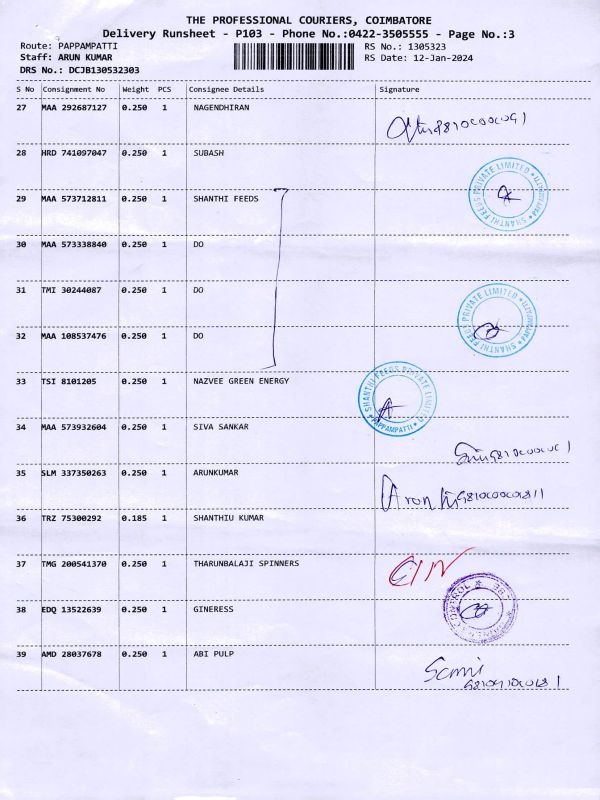 THE PROFESSIONAL COURIERS, COIMBATORE
Delivery Runsheet - P103 - Phone No.:0422-3505555 - Page No.:3
Route: PAPPAMPATTI RS No.: 1305323
Staff: ARUN KUMAR RS Date: 12-Jan-2024
DRS No.: DCJB130532303
S No Consignment No Weight PCS Consignee Details Signature
27 MAA 292687127 0.250 1 NAGENDHIRAN
28 HRD 741097047 0.250 1 SUBASH
SHANTHI FEEDS PRIVATE LIMITED * PAPPAMPATTI *
29 MAA 573712811 0.250 1 SHANTHI FEEDS
30 MAA 573338840 0.250 1 DO
31 TMI 30244087 0.250 1 DO
SHANTHI FEEDS PRIVATE LIMITED * PAPPAMPATTI *
32 MAA 108537476 0.250 1 DO
33 TSI 8101205 0.250 1 NAZVEE GREEN ENERGY
SHANTHI FEEDS PRIVATE LIMITED * PAPPAMPATTI *
34 MAA 573932604 0.250 1 SIVA SANKAR
35 SLM 337350263 0.250 1 ARUNKUMAR
36 TRZ 75300292 0.185 1 SHANTHIU KUMAR
37 TMG 200541370 0.250 1 THARUNBALAJI SPINNERS
38 EDQ 13522639 0.250 1 GINERESS
39 AMD 28037678 0.250 1 ABI PULP